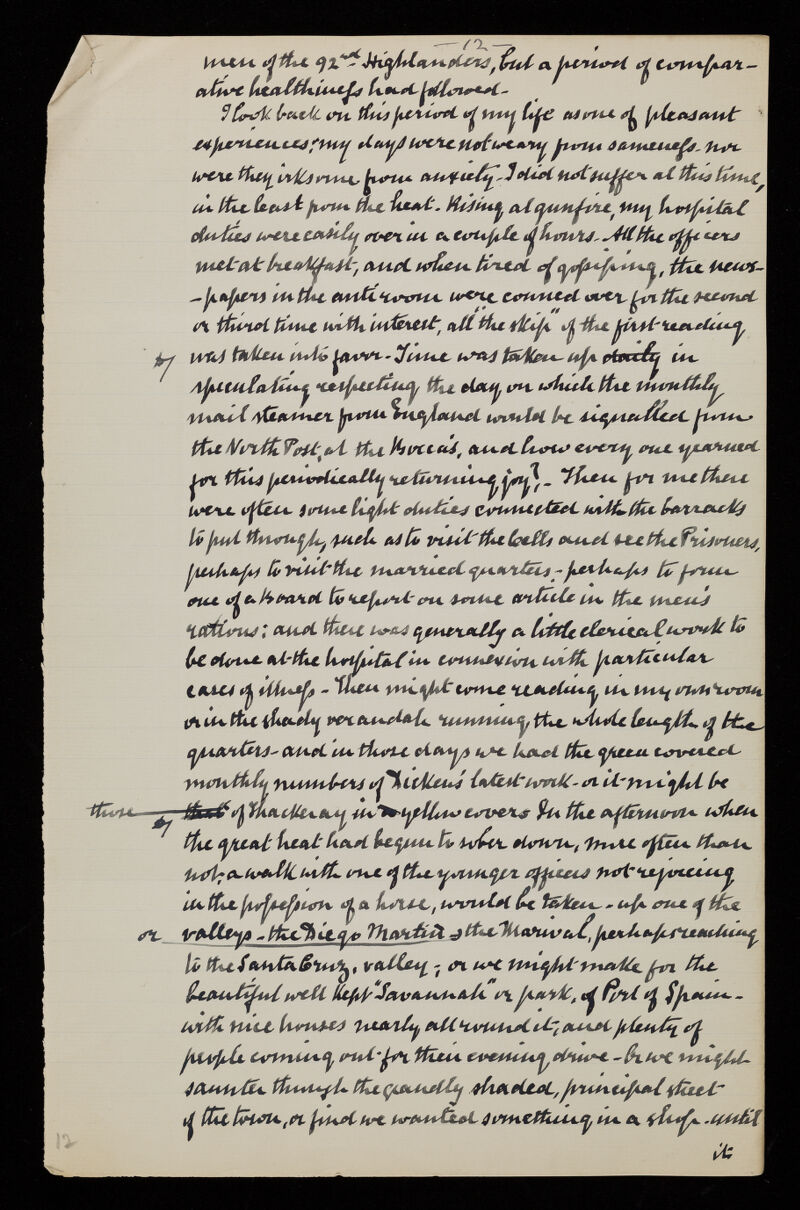 -12-
men of the 92nd Highlanders, but a period of compar-
ative healthiness had followed-
I look back on this period of my life as one of pleasant
experiences; my days were not weary from sameness nor
were they irksome from anxiety- I did not suffer at this time,
in the least from the heat- Rising at gunfire, my hospital
duties were easily over in a couple of hours- All the officers
met at breakfast, and when tired of gossiping, the news-
-papers in the anti room were conned over for the second
or third time with interest, all "the skip" of the first reading
was taken into favor- Time was taken up daily in
speculating respecting the day on which the monthly
mail steamer from England would be signalled from
the North Post, at the Bocca's, and how every one yearned
for this periodically returning joy?- Then for me there
were often some light duties connected with the barracks
to put through, such as to visit the Cells and see the Prisoners,
perhaps to visit the married quarters,- perhaps to form
one of a Board to report on some article in the men's
rations: and there was generally a little clerical work to
be done at the hospital in connexion with particular
cases of illness- Then might come reading in my own room
or in the shady verandah running, the whole length of the
quarters- and in those days we had the green covered
monthly numbers of Dickens' latest work- or it might be
those that of Thackeray in a yellow covers In the afternoon when
the great heat had begun to sober down, more often than
not, a walk with one of the younger officers not rejoicing
in the possession of a horse, would be taken- up one of the
or valleys- the Diego Martin, the Marival, perhaps reaching
to the Santa Cruz, valley; or we might make for the
beautiful well kept "Savannah" or park, of Port of Spain-
with nice houses nearly all round it; and plenty of
people coming out for their evening drive- Or we might
saunter through the grandly shaded, principal street
of the town, or find we wanted something in a shop- until
it
12